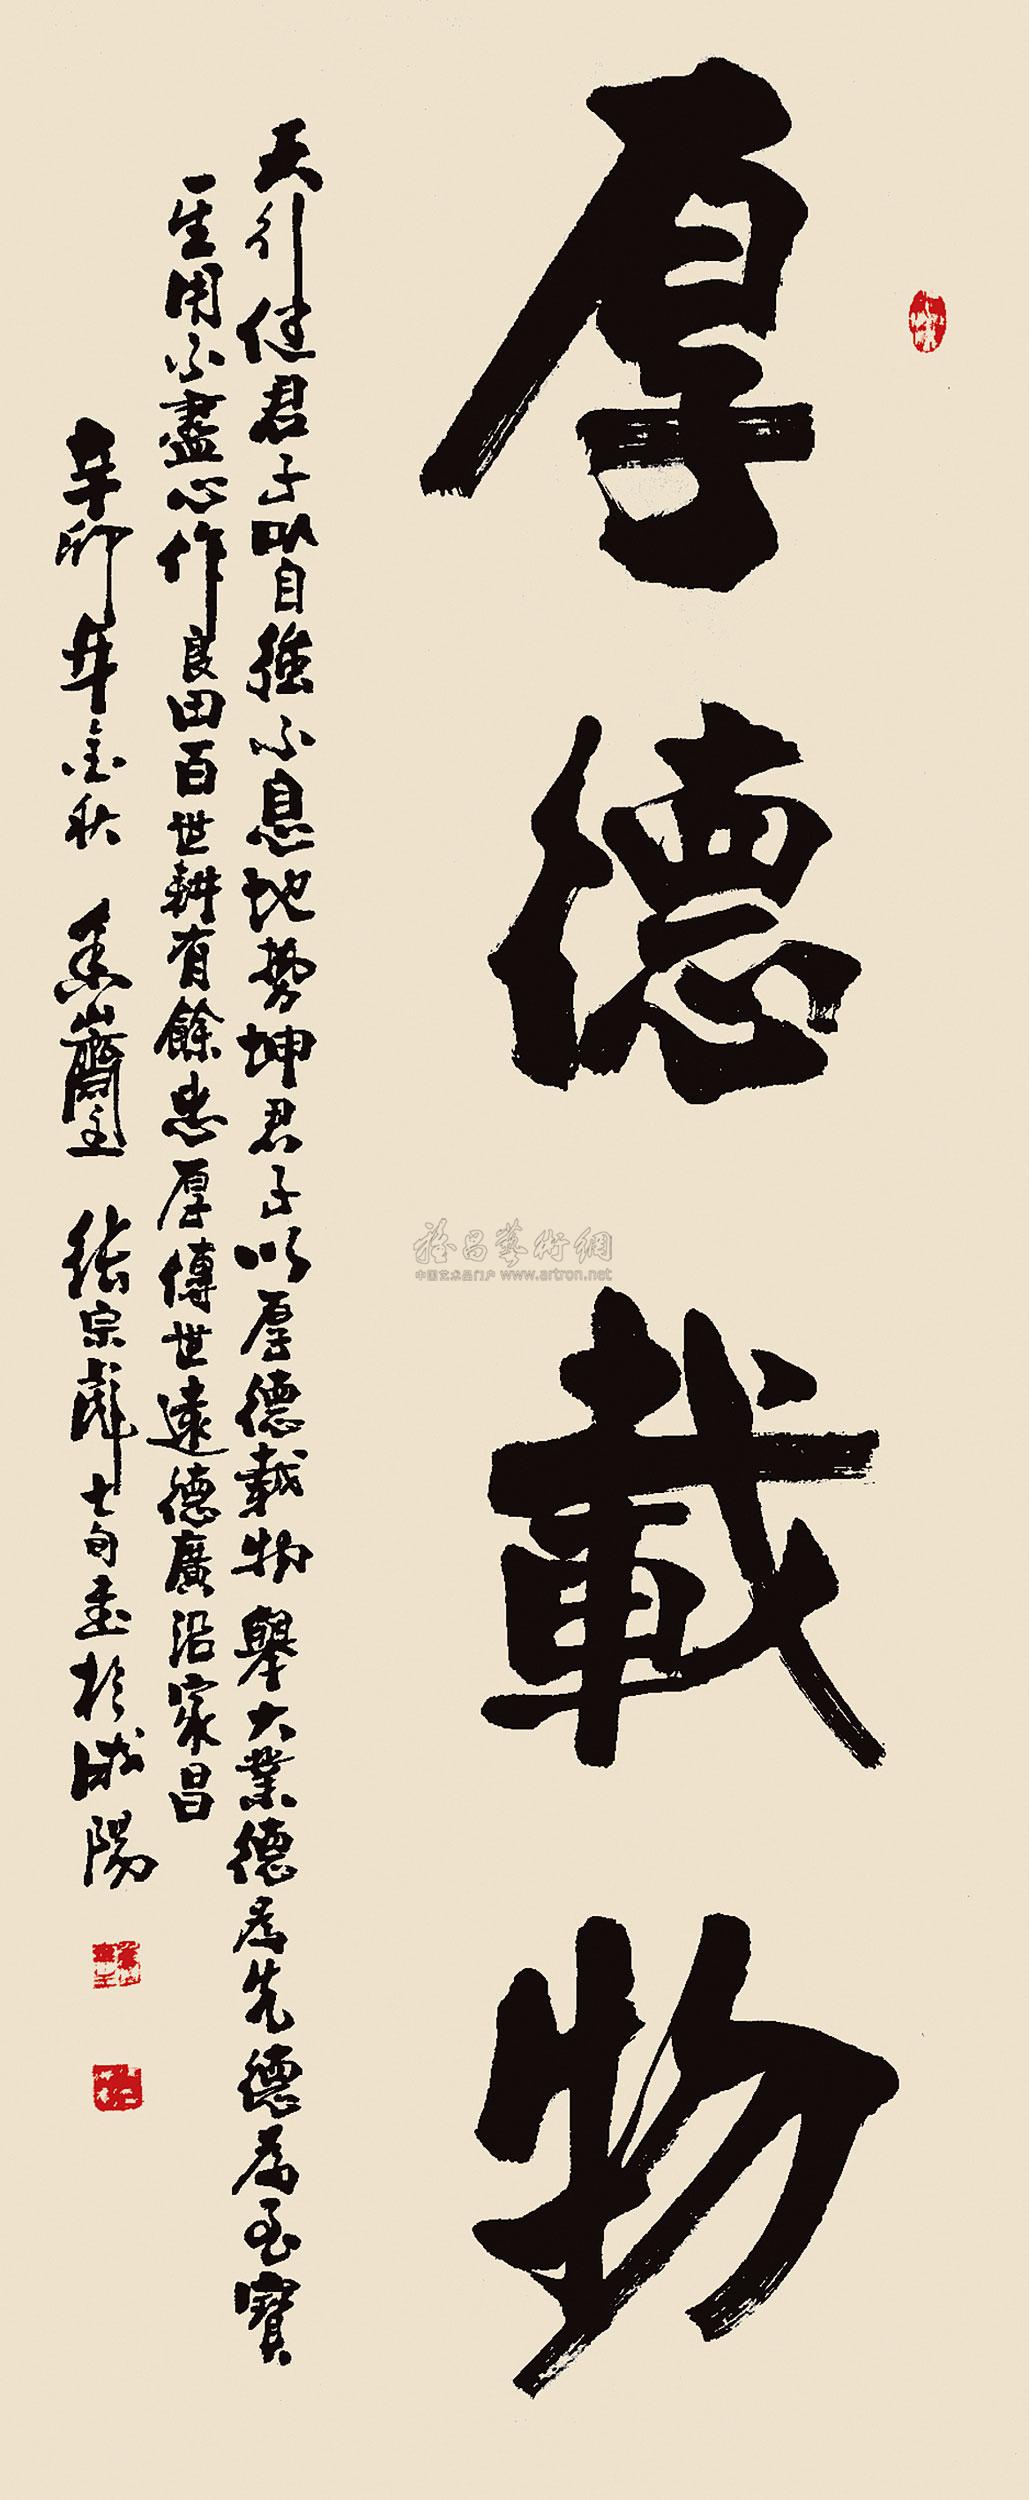 厚德載物
天行健君子以自強不息地勢坤君子以厚德載物舉大業德為先德為至寶
一生用不盡心作良田百世耕有餘忠厚傳世遠德廣沿家昌
辛卯年金秋 香山齋主 張宗彪七旬書於咸陽
雅昌藝術網
中国艺术品门户 www.artron.net